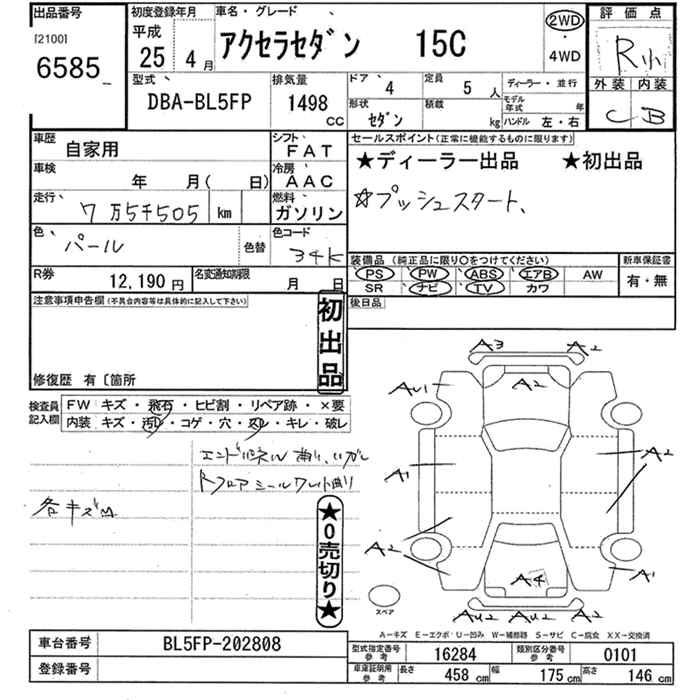 出品番号
[2100]
6585
初度登録年月
平成
25 4月
車名・グレード
アクセラセダン 15C
2WD
・
4WD
評価点
R小
外装 内装
C B
型式
DBA-BL5FP
排気量
1498
CC
ドア 4
定員 5 人
形状 セダン
積載 kg
ディーラー・並行
モデル年式 年
ハンドル 左・右
車歴 自家用
シフト FAT
車検 年 月( 日)
冷房 AAC
走行 7万5千505 km
燃料 ガソリン
色 パール
色替
色コード 34K
R券 12,190円
名変通知期限 月 日
セールスポイント(正常に機能するものに限ります)
★ディーラー出品 ★初出品
☆プッシュスタート、
装備品(純正品に限り○をつけてください)
PS PW ABS エアB AW
SR ナビ TV カワ
新車保証書
有・無
後日品
注意事項申告欄(不具合内容等は具体的に記入して下さい)
初出品
修復歴 有〔箇所
検査員記入欄
FW キズ・飛石・ヒビ割・リペア跡・×要
内装 キズ・汚れ・コゲ・穴・スレ・キレ・破レ
エンドパネル 曲り、
Rフロア シールワレ 曲り
各キズ
★0売切り★
A3 A2
AU1 A2
A1 A2
A2 A1
A4
AU2 AU2 A2
スペア
A-キズ E-エクボ U-凹み W-補修跡 S-サビ C-腐食 XX-交換済
車台番号 BL5FP-202808
登録番号
型式指定番号 参考 16284
類別区分番号 参考 0101
車庫証明用 参考 長さ 458cm 幅 175cm 高さ 146cm